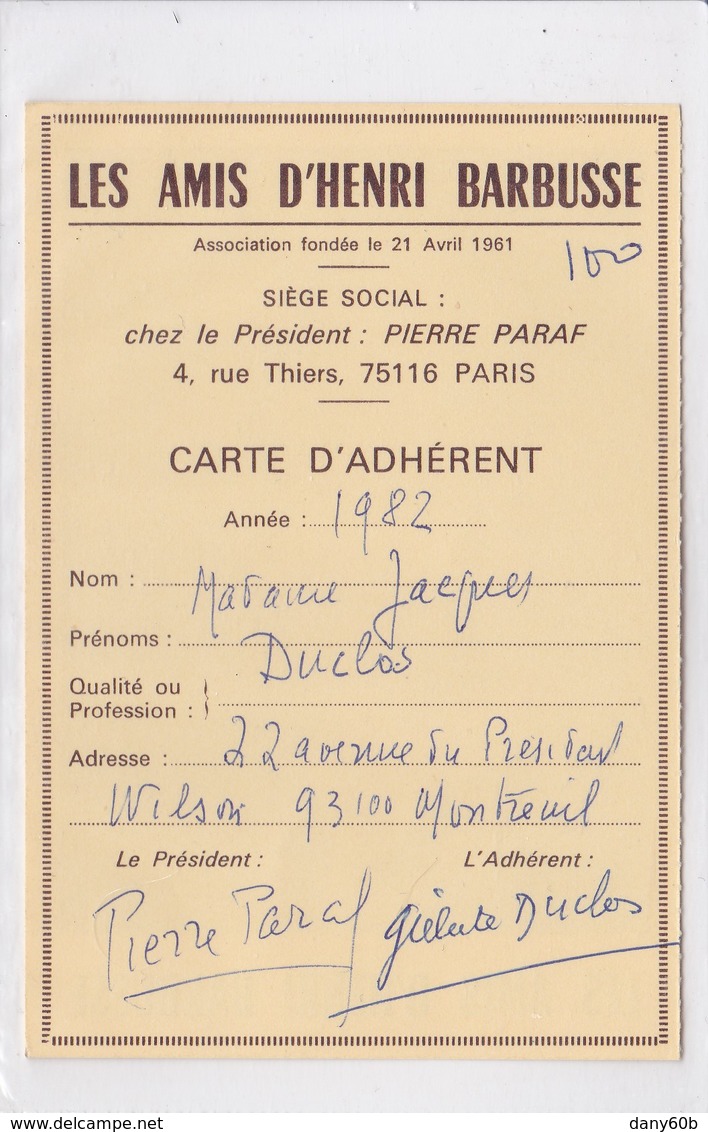 LES AMIS D'HENRI BARBUSSE
Association fondée le 21 Avril 1961
100
SIÈGE SOCIAL :
chez le Président : PIERRE PARAF
4, rue Thiers, 75116 PARIS
CARTE D'ADHÉRENT
Année : 1982
Nom : Madame Jacques
Prénoms : Duclos
Qualité ou
Profession :
Adresse : 22 avenue du President
Wilson 93100 Montreuil
Le Président : L'Adhérent :
Pierre Paraf Duclos
delcampe.net
dany60b